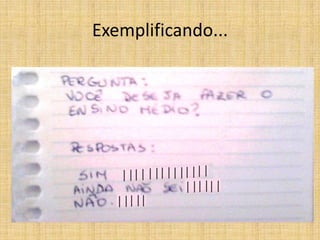 Exemplificando...
PERGUNTA:
VOCÊ DESEJA FAZER O
ENSINO MÉDIO?
RESPOSTAS:
SIM ||||||||||||||
AINDA NÃO SEI ||||||
NÃO. |||||